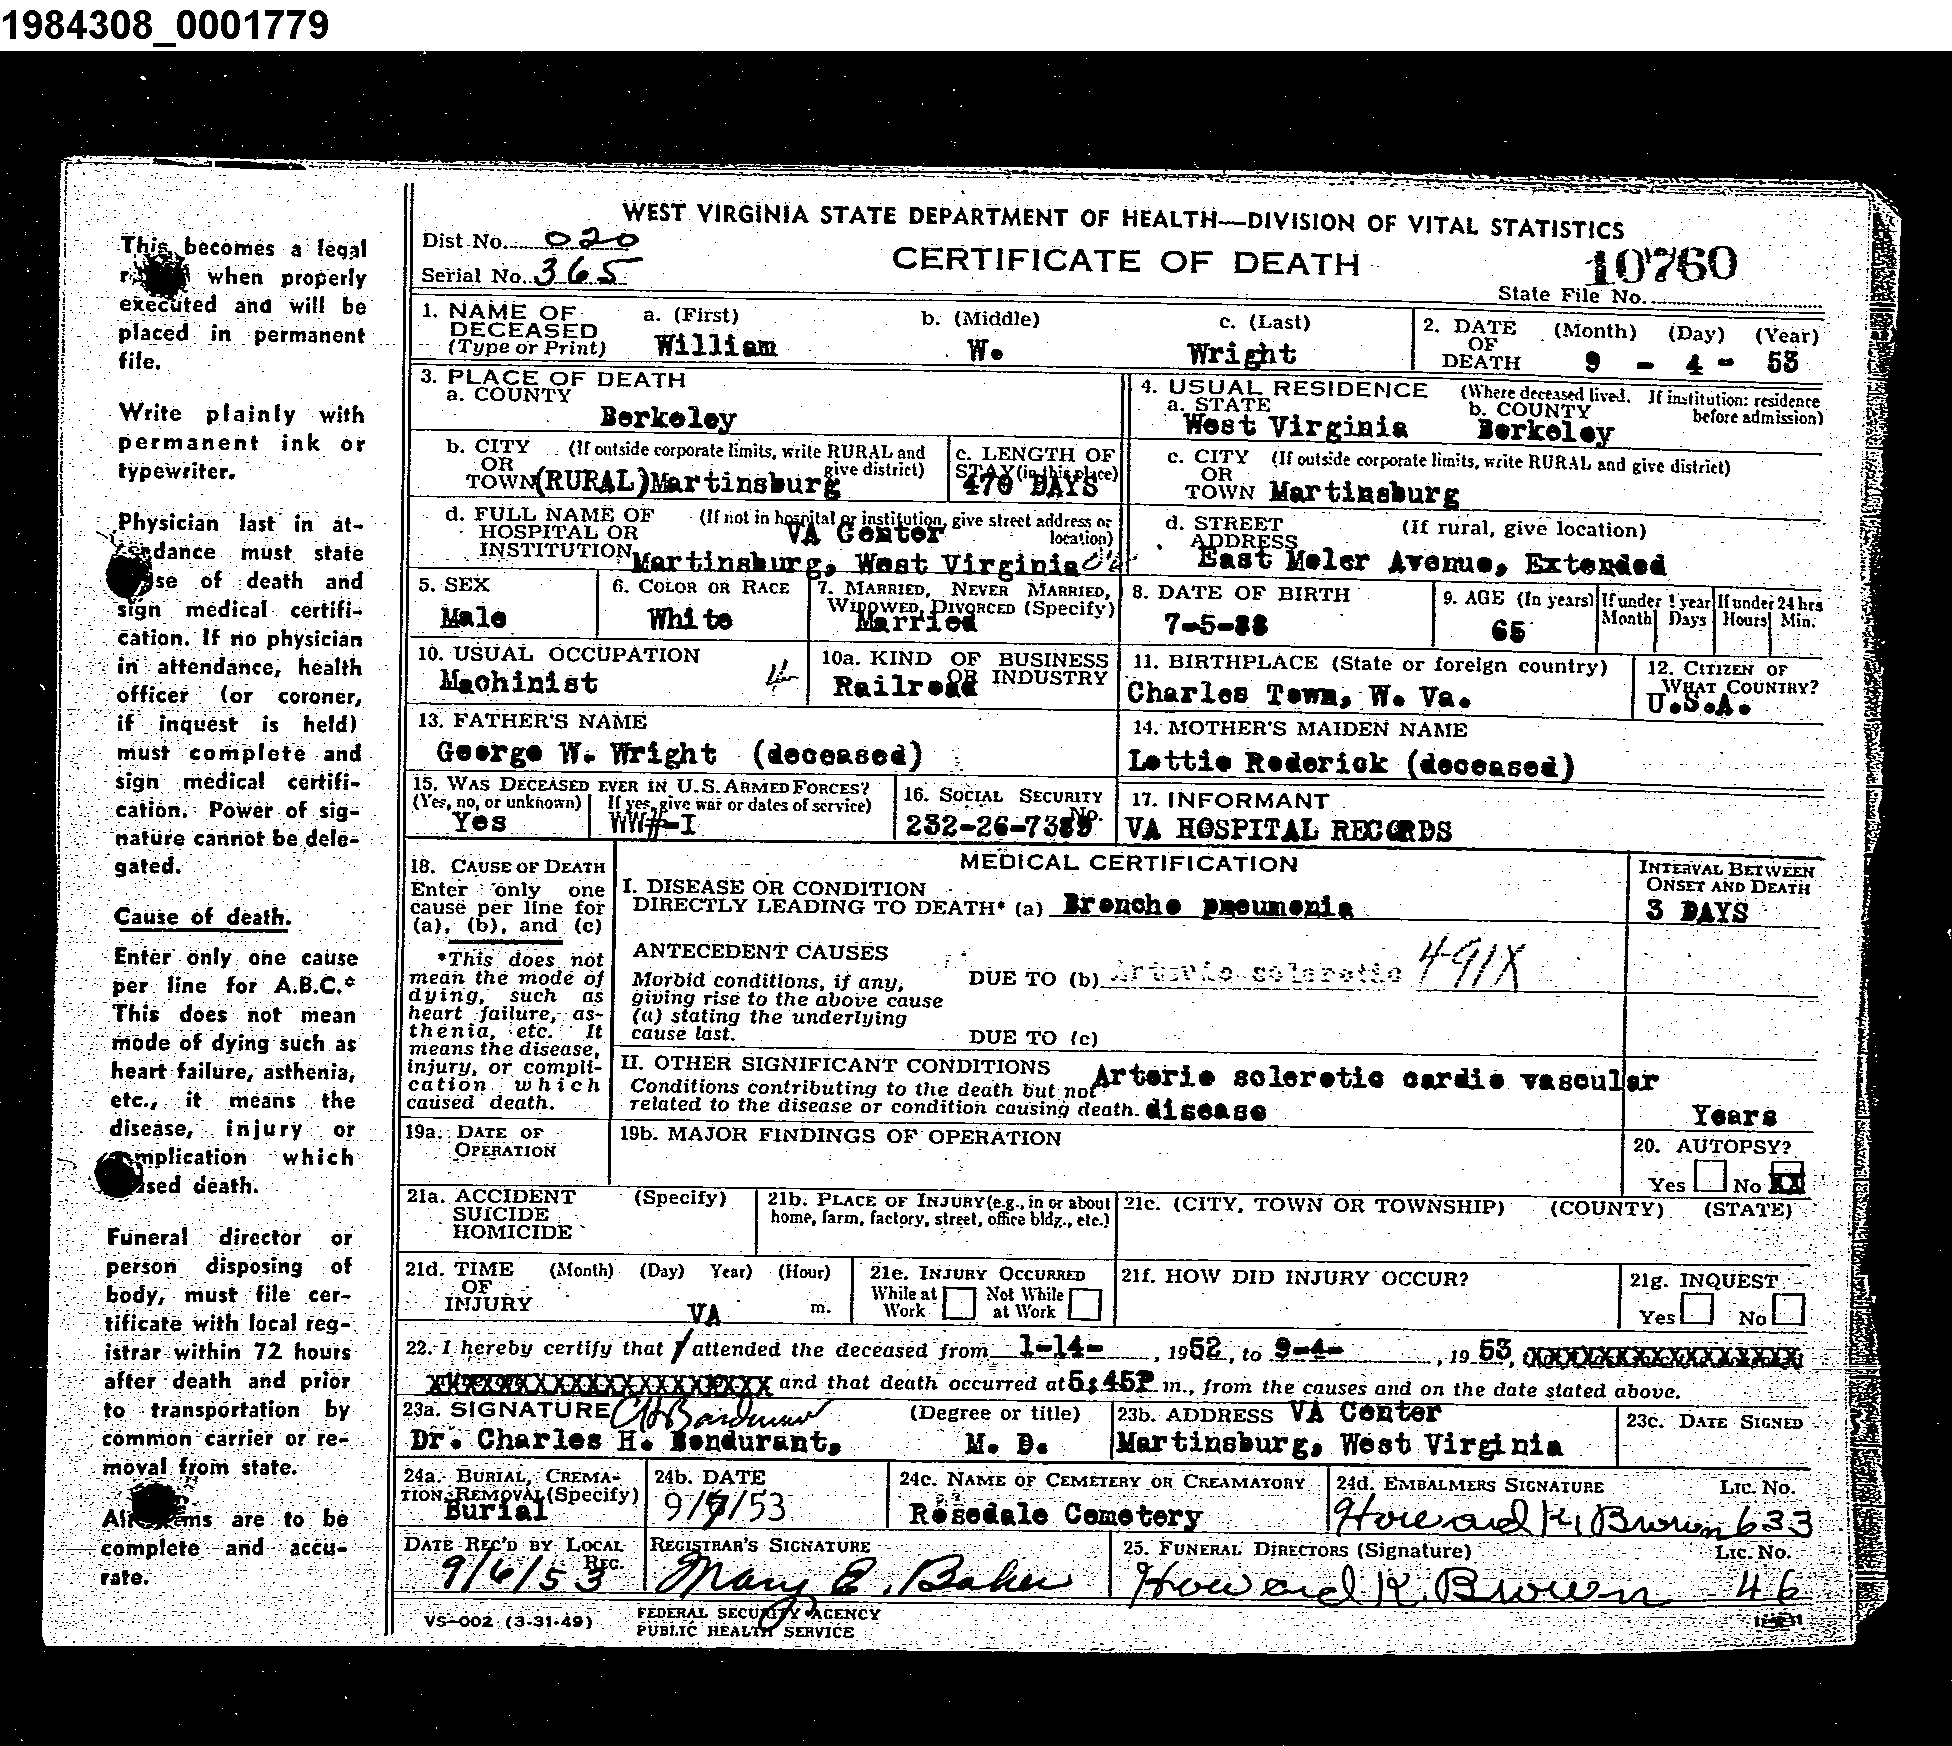 1984308_0001779
WEST VIRGINIA STATE DEPARTMENT OF HEALTH—DIVISION OF VITAL STATISTICS
Dist No. 020
CERTIFICATE OF DEATH
10760
Serial No. 365
State File No.
1. NAME OF DECEASED (Type or Print)
a. (First) William
b. (Middle) W.
c. (Last) Wright
2. DATE OF DEATH (Month) (Day) (Year)
9 - 4 - 53
3. PLACE OF DEATH
a. COUNTY
Berkeley
4. USUAL RESIDENCE (Where deceased lived. If institution: residence before admission)
a. STATE West Virginia
b. COUNTY Berkeley
b. CITY OR TOWN (If outside corporate limits, write RURAL and give district)
(RURAL) Martinsburg
c. LENGTH OF STAY (in this place)
470 DAYS
c. CITY OR TOWN (If outside corporate limits, write RURAL and give district)
Martinsburg
d. FULL NAME OF HOSPITAL OR INSTITUTION (If not in hospital or institution, give street address or location)
VA Center
Martinsburg, West Virginia
d. STREET ADDRESS (If rural, give location)
East Moler Avenue, Extended
5. SEX
Male
6. COLOR OR RACE
White
7. MARRIED, NEVER MARRIED, WIDOWED, DIVORCED (Specify)
Married
8. DATE OF BIRTH
7-5-88
9. AGE (In years)
65
If under 1 year Month Days
If under 24 hrs Hours Min.
10. USUAL OCCUPATION
Machinist
10a. KIND OF BUSINESS OR INDUSTRY
Railroad
11. BIRTHPLACE (State or foreign country)
Charles Town, W. Va.
12. CITIZEN OF WHAT COUNTRY?
U.S.A.
13. FATHER'S NAME
George W. Wright (deceased)
14. MOTHER'S MAIDEN NAME
Lottie Roderick (deceased)
15. WAS DECEASED EVER IN U.S. ARMED FORCES?
(Yes, no, or unknown) If yes, give war or dates of service)
Yes WW#-I
16. SOCIAL SECURITY No.
232-26-7389
17. INFORMANT
VA HOSPITAL RECORDS
18. CAUSE OF DEATH
Enter only one cause per line for (a), (b), and (c)
*This does not mean the mode of dying, such as heart failure, asthenia, etc. It means the disease, injury, or complication which caused death.
MEDICAL CERTIFICATION
INTERVAL BETWEEN ONSET AND DEATH
I. DISEASE OR CONDITION
DIRECTLY LEADING TO DEATH* (a) Broncho pneumonia
3 DAYS
ANTECEDENT CAUSES
Morbid conditions, if any, giving rise to the above cause (a) stating the underlying cause last.
DUE TO (b) Arterio sclerotic 491X
DUE TO (c)
II. OTHER SIGNIFICANT CONDITIONS
Conditions contributing to the death but not related to the disease or condition causing death.
Arterio sclerotic cardio vascular
disease
Years
19a. DATE OF OPERATION
19b. MAJOR FINDINGS OF OPERATION
20. AUTOPSY?
Yes No XX
21a. ACCIDENT SUICIDE HOMICIDE (Specify)
21b. PLACE OF INJURY (e.g., in or about home, farm, factory, street, office bldg., etc.)
21c. (CITY, TOWN OR TOWNSHIP) (COUNTY) (STATE)
21d. TIME OF INJURY (Month) (Day) Year) (Hour) m.
21e. INJURY OCCURRED
While at Work Not While at Work
21f. HOW DID INJURY OCCUR?
21g. INQUEST
Yes No
VA
22. I hereby certify that I attended the deceased from 1-14- , 1952, to 9-4- , 1953, XXXXXXXXXXXXXXXXX
XXXXXXXXXXXXXXXXXXXX and that death occurred at 5:45P m., from the causes and on the date stated above.
23a. SIGNATURE (Degree or title)
Dr. Charles H. Bondurant, M. D.
23b. ADDRESS VA Center
Martinsburg, West Virginia
23c. DATE SIGNED
24a. BURIAL, CREMATION, REMOVAL (Specify)
Burial
24b. DATE
9/7/53
24c. NAME OF CEMETERY OR CREAMATORY
Rosedale Cemetery
24d. EMBALMERS SIGNATURE LIC. NO.
Howard K. Brown 633
DATE REC'D BY LOCAL REG.
9/6/53
REGISTRAR'S SIGNATURE
Mary E. Baker
25. FUNERAL DIRECTORS (Signature) LIC. NO.
Howard K. Brown 46
VS-002 (3-31-49)
FEDERAL SECURITY AGENCY
PUBLIC HEALTH SERVICE
This becomes a legal
when properly
executed and will be
placed in permanent
file.
Write plainly with
permanent ink or
typewriter.
Physician last in at-
dance must state
of death and
sign medical certifi-
cation. If no physician
in attendance, health
officer (or coroner,
if inquest is held)
must complete and
sign medical certifi-
cation. Power of sig-
nature cannot be dele-
gated.
Cause of death.
Enter only one cause
per line for A.B.C.*
This does not mean
mode of dying such as
heart failure, asthenia,
etc., it means the
disease, injury or
mplication which
sed death.
Funeral director or
person disposing of
body, must file cer-
tificate with local reg-
istrar within 72 hours
after death and prior
to transportation by
common carrier or re-
moval from state.
are to be
complete and accu-
rate.